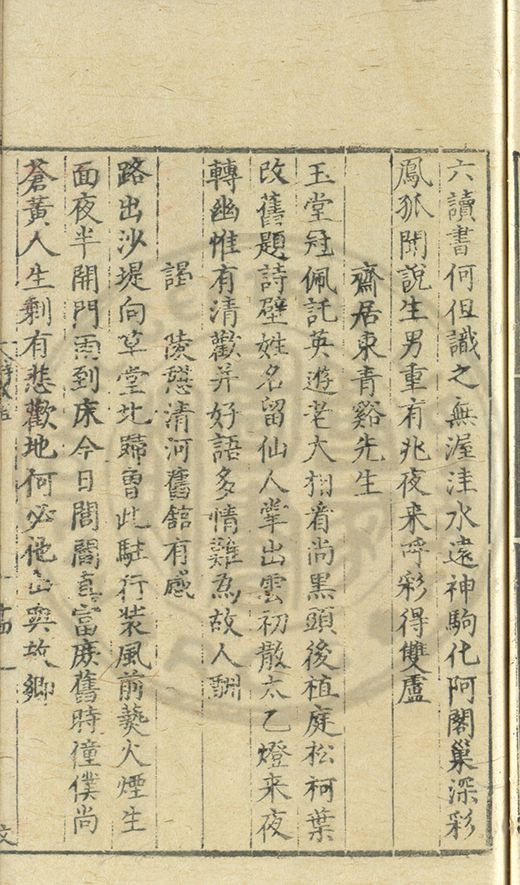 六讀書何但識之無渥洼水遠神駒化阿閣巢深彩
鳳孤聞說生男重有兆夜来呼彩得雙盧
齋居柬青谿先生
玉堂冠佩託英遊老大相看尚黑頭後植庭松柯葉
改舊題詩壁姓名留仙人掌出雲初散太乙燈来夜
轉幽惟有清歡并好語多情難爲故人酬
謁陵憩清河舊館有感
路出沙堤向草堂北歸曾此駐行装風前爇火煙生
面夜半開門雨到床今日閭閻真富庶舊時僮僕尚
蒼黄人生剩有悲歡地何必他山與故鄉